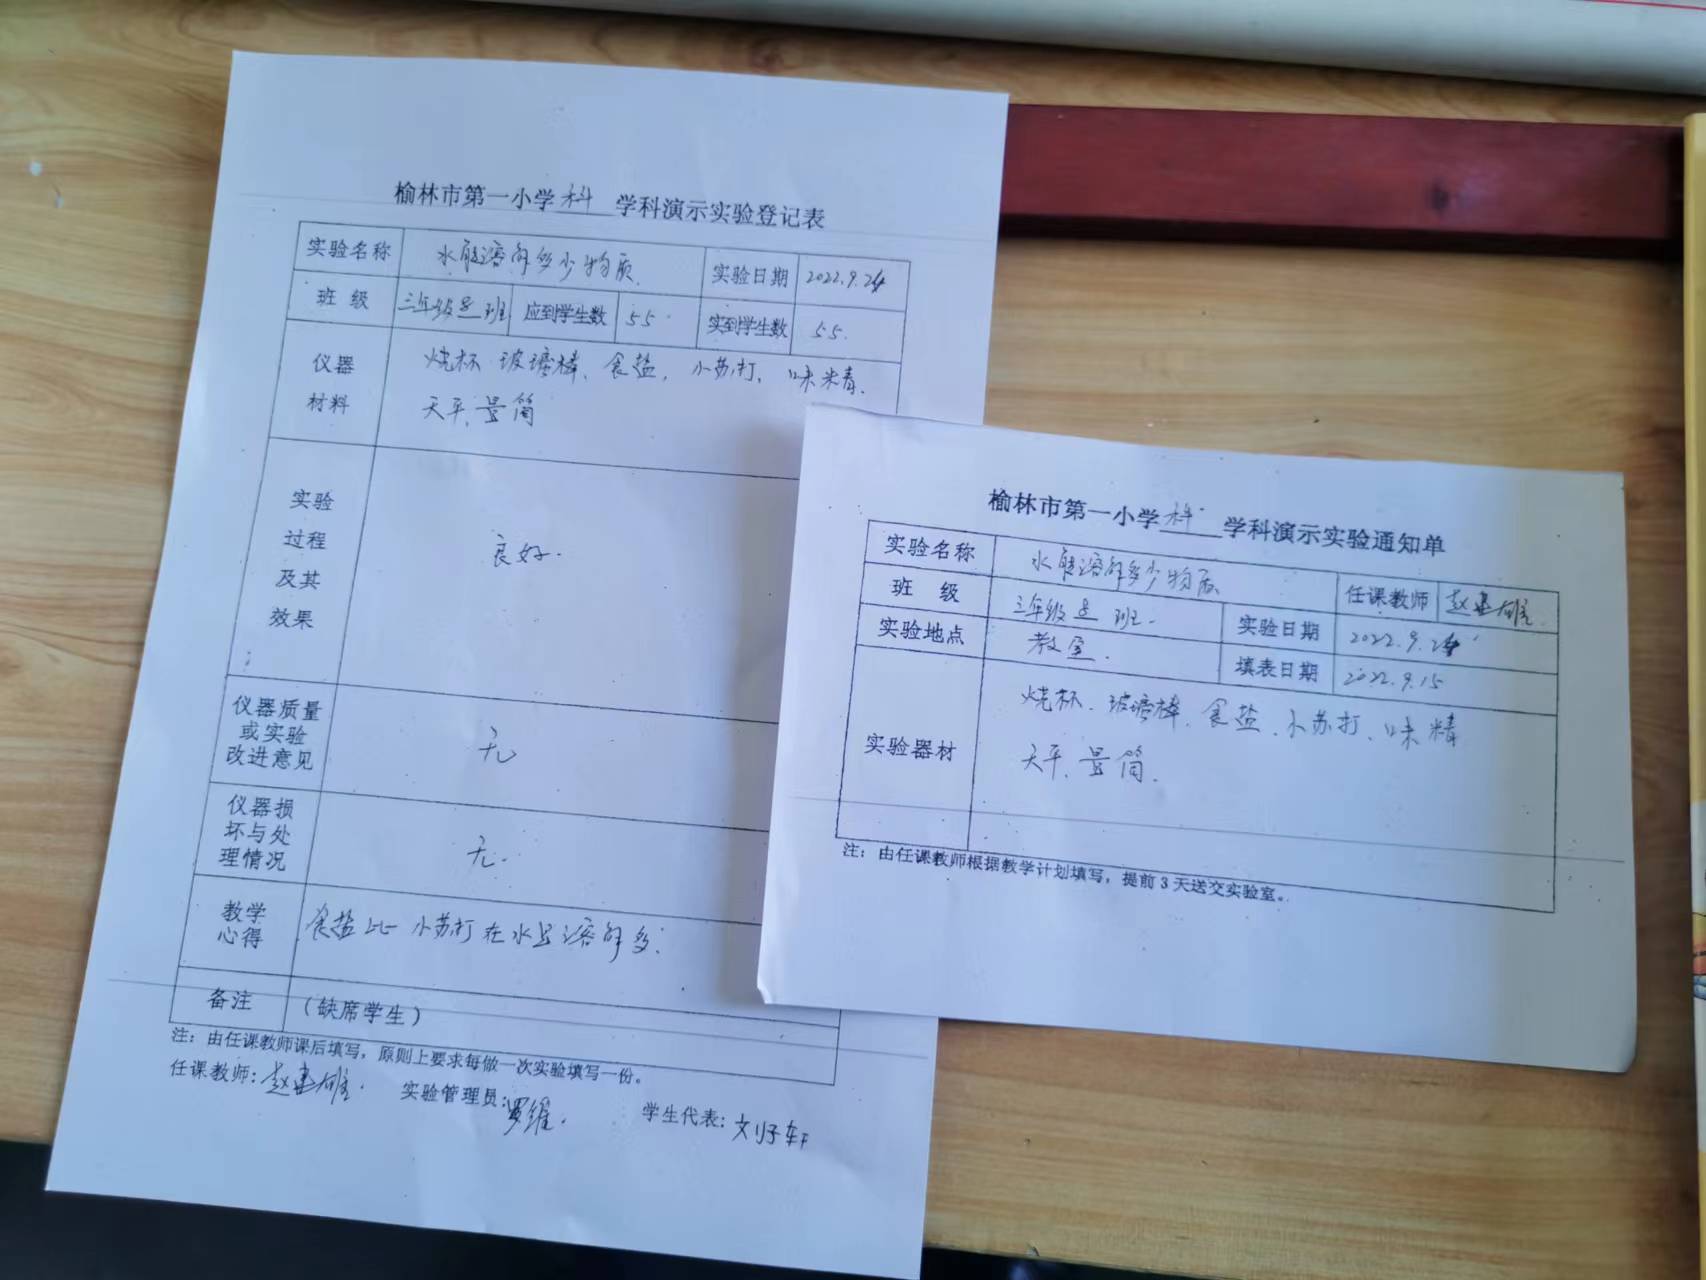 榆林市第一小学科 学科演示实验登记表
实验名称 水能溶解多少物质 实验日期 2022.9.24
班 级 三年级 班 应到学生数 55 实到学生数 55.
仪器 烧杯 玻璃棒、食盐、小苏打、味精、
材料 天平、量筒
实验
过程
及其
效果
良好.
仪器质量
或实验
改进意见
无
仪器损
坏与处
理情况
无.
教学
心得
食盐比小苏打在水 溶解多.
备注 (缺席学生)
注：由任课教师课后填写，原则上要求每做一次实验填写一份。
任课教师: 赵建雄. 实验管理员: 罗维. 学生代表:
榆林市第一小学科 学科演示实验通知单
实验名称 水能溶解多少物质 任课教师 赵建雄.
班 级 三年级 班. 实验日期 2022.9.24
实验地点 教室. 填表日期 2022.9.15
实验器材
烧杯、玻璃棒、食盐、小苏打、味精
天平、量筒.
注：由任课教师根据教学计划填写，提前3天送交实验室。